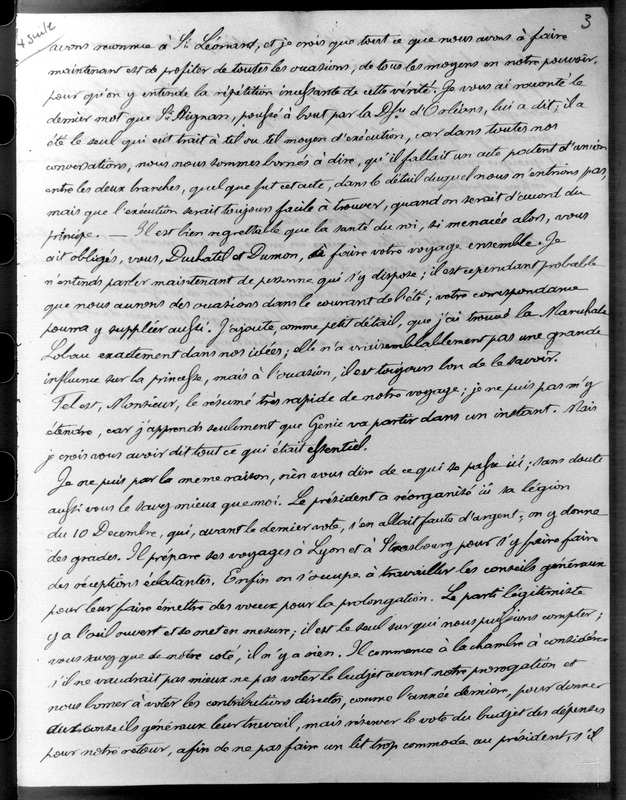 3
4 suite
avons reconnue à St. Léonard, et je crois que tout ce que nous avons à faire
maintenant est de profiter de toutes les occasions, de tous les moyens en notre pouvoir,
pour qu'on y entende la répétition incessante de cette vérité. Je vous ai raconté le
dernier mot que St. Aignan, poussé à bout par la Dsse d'Orléans, lui a dit; il a
été le seul qui eut trait à tel ou tel moyen d'exécution, car dans toutes nos
conversations, nous nous sommes bornés à dire, qu'il fallait un acte patent d'union
entre les deux branches, quel que fut cet acte, dans le détail duquel nous n'entrions pas,
mais que l'exécution serait toujours facile à trouver, quand on serait d'accord du
principe. — Il est bien regrettable que la santé du roi, si menacée alors, vous
ait obligés, vous, Duchatel et Dumon, de faire votre voyage ensemble. Je
n'entends parler maintenant de personne qui s'y dispose; il est cependant probable
que nous aurons des occasions dans le courant de l'été; votre correspondance
pourra y suppléer aussi. J'ajoute, comme petit détail, que j'ai trouvé la Maréchale
Lobau exactement dans nos idées; elle n'a vraisemblablement pas une grande
influence sur la princesse, mais à l'occasion, il est toujours bon de le savoir.
Tel est, Monsieur, le résumé très rapide de notre voyage; je ne puis pas m'y
étendre, car j'apprends seulement que Génie va partir dans un instant. Mais
je crois vous avoir dit tout ce qui était essentiel.
Je ne puis par la meme raison, rien vous dire de ce qui se passe ici; sans doute
aussi vous le savez mieux que moi. Le président a réorganisé ici sa légion
du 10 Decembre, qui, avant le dernier vote, s'en allait faute d'argent; on y donne
des grades. Il prépare ses voyages à Lyon et à Strasbourg pour s'y faire faire
des réceptions éclatantes. Enfin on s'occupe à travailler les conseils généraux
pour leur faire émettre des voeux pour la prolongation. Le parti légitimiste
y a l'oeil ouvert et se met en mesure; il est le seul sur qui nous puissions compter;
vous savez que de notre coté, il n'y a rien. Il commence à la chambre à considérer
s'il ne vaudrait pas mieux ne pas voter le budjet avant notre prorogation et
nous borner à voter les contributions directes, comme l'année dernière, pour donner
aux conseils généraux leur travail, mais réserver le vote du budjet des dépenses
pour notre retour, afin de ne pas faire un lit trop commode au président, s'il